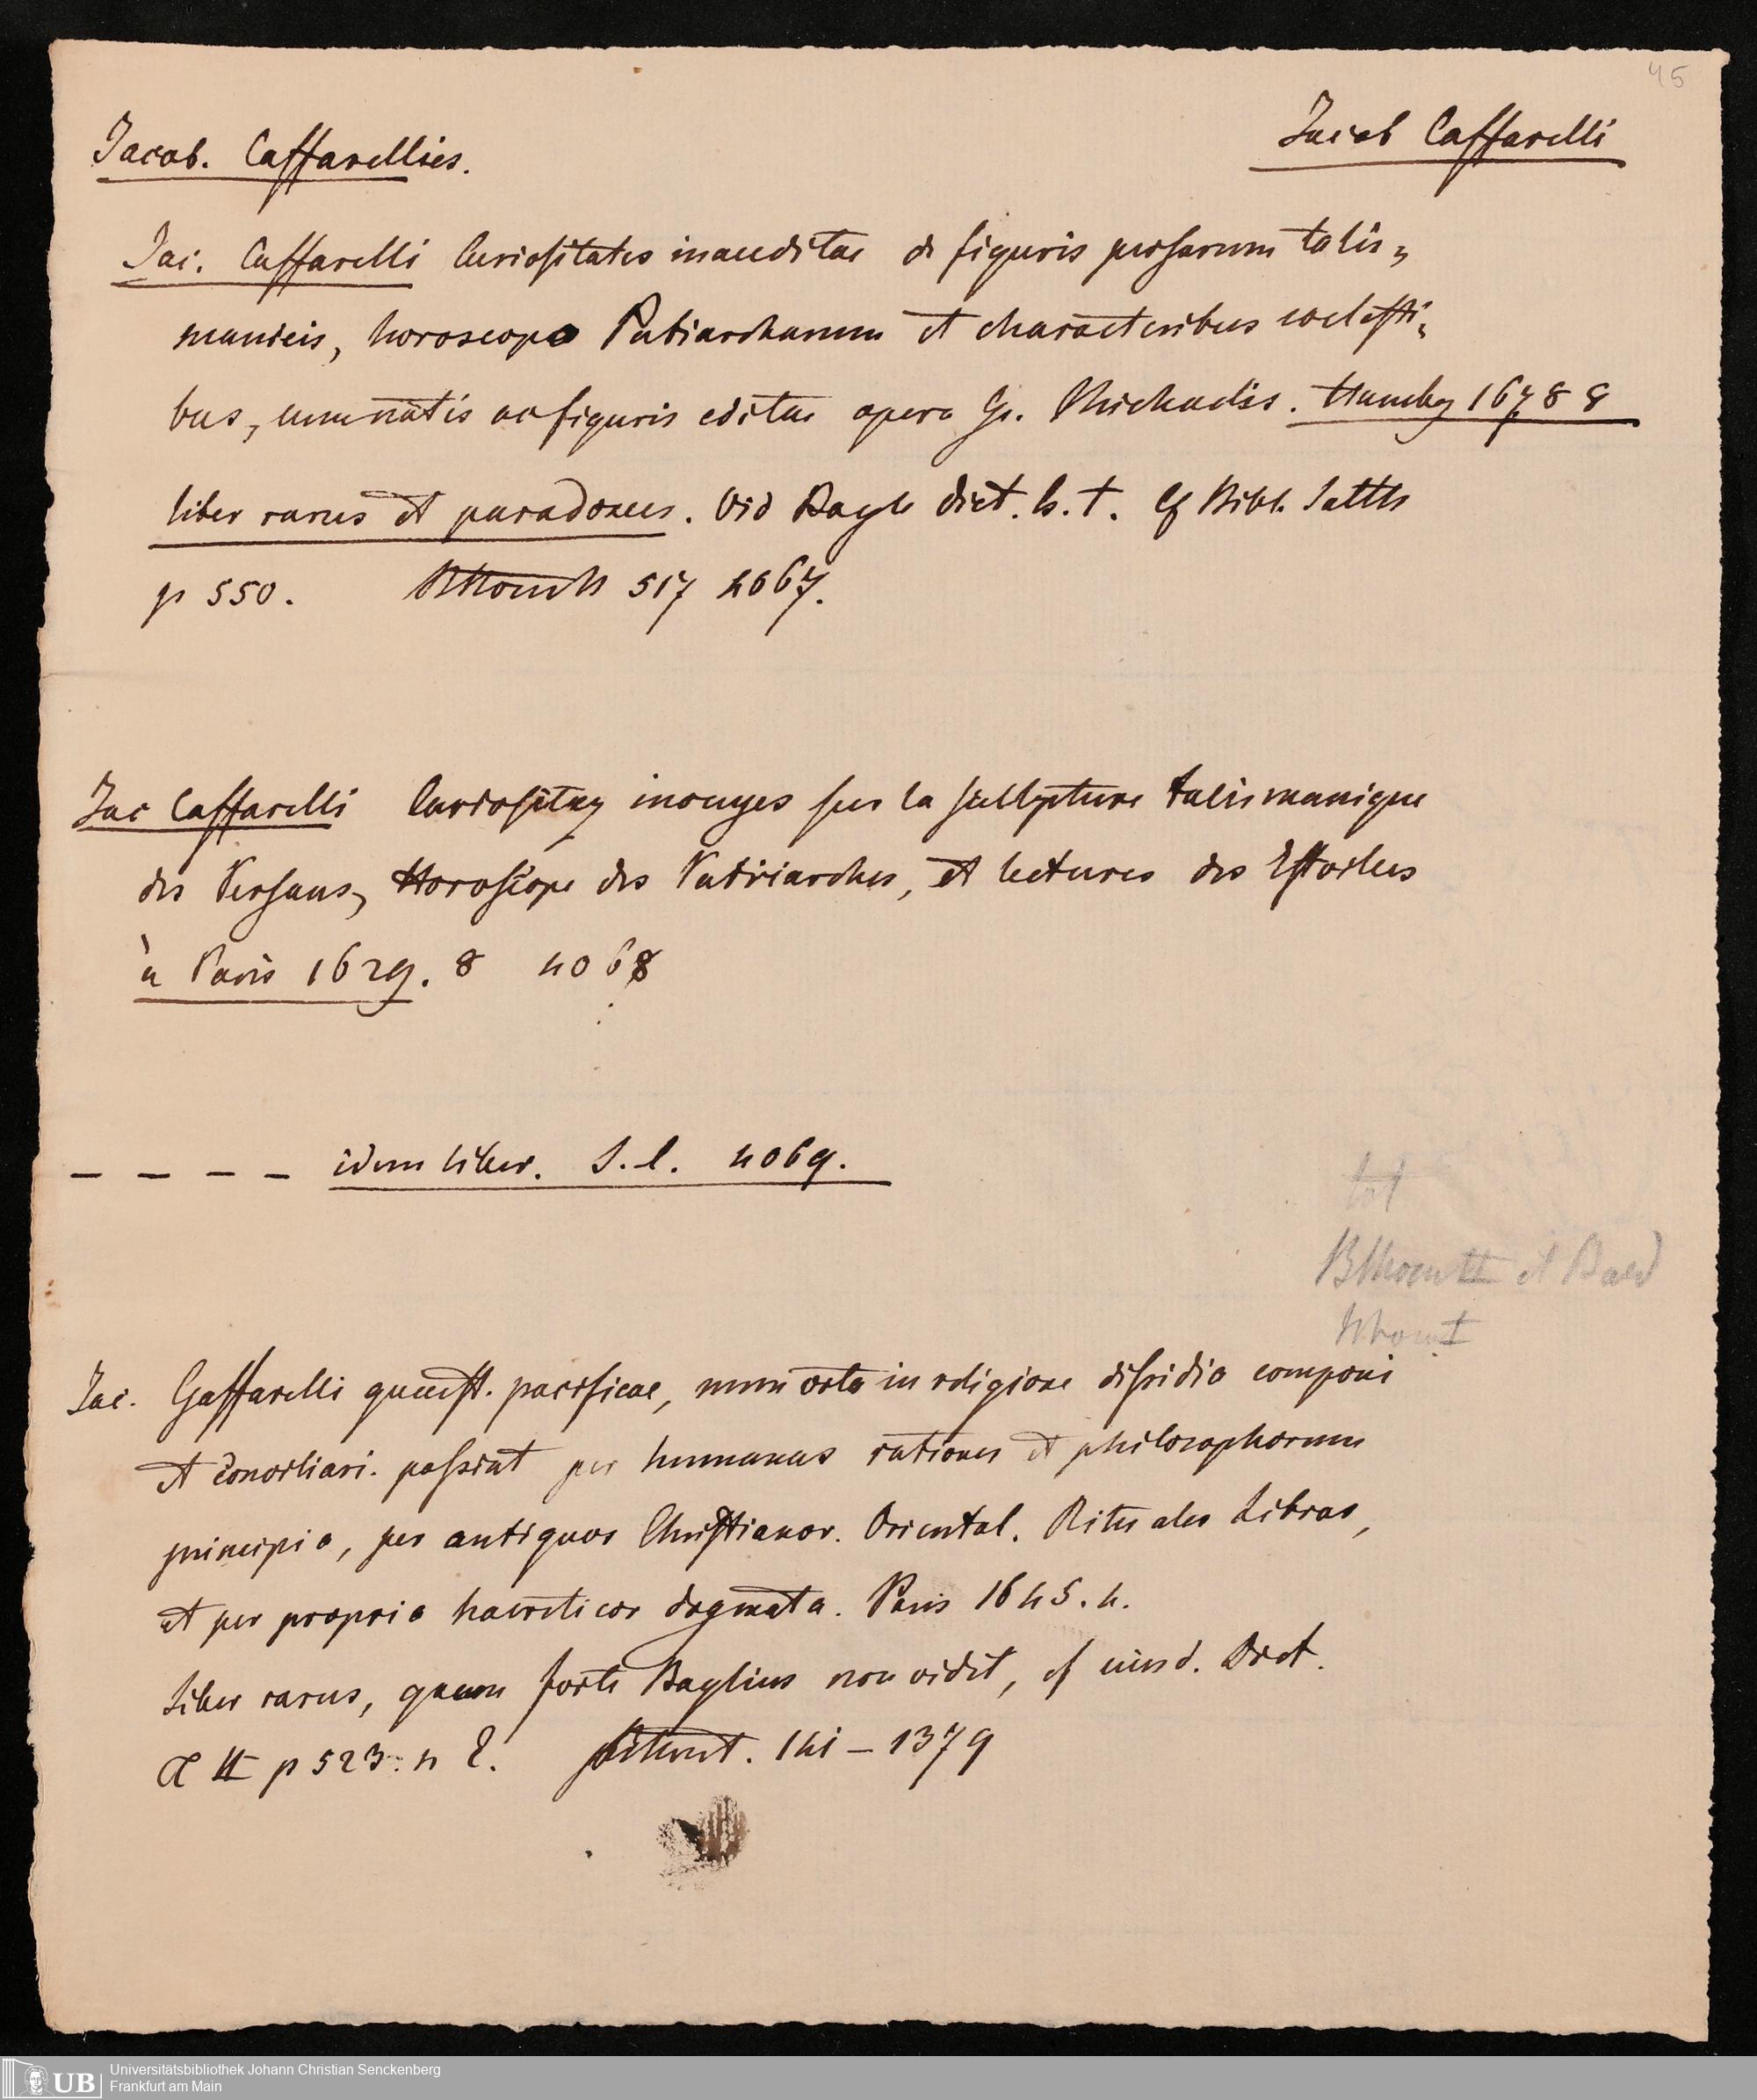 45
Jacob. Caffarellies.
Jacob Caffarelli
Jac. Caffarelli Curiositates inauditae de figuris persarum talis=
manicis, horoscopo Patriarcharum et characteribus coelesti=
bus, cum notis ac figuris editae opera Gr. Michaelis. Hamby 1678 8
liber rarus et paradoxus. Vid Bayle dict. h. t. Cf Bibl. Salth
p 550. 517 4067.
Jac Caffarelli Curiositez inouyes sur la scullpture talismanique
des Persans, Horoscope des Patriarches, et lectures des Estoilles
à Paris 1629. 8 4068
— — — — idem liber. S. l. 4069.
tot
et
Jac. Gaffarelli quaest. pacificae, num orta in religione dissidia componi
et conciliari possint per humanas rationes et philosophorum
principia, per antiquos Christianor. Oriental. Rituales Libros,
et per propria haereticor dogmata. Paris 1645. 4.
Liber rarus, quem forte Baylius non vidit, cf eiusd. Dict.
T II p 523. n 141 – 1379
UB
Universitätsbibliothek Johann Christian Senckenberg
Frankfurt am Main